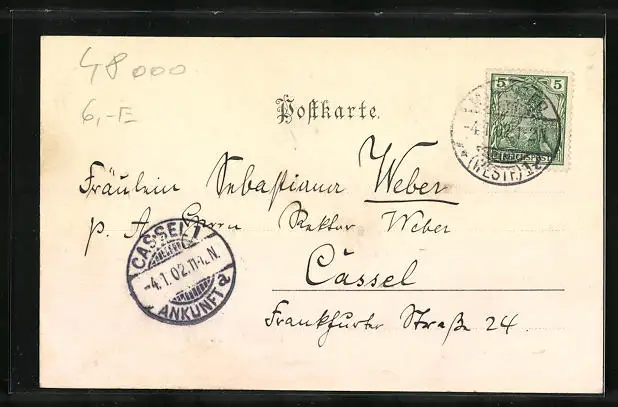 48000
6,-E
Postkarte.
5 5
REICHSPOST
(WESTF.) 1c
Fräulein Sebastiana Weber
p. A. Herrn Rektor Weber
Cassel
Frankfurter Straße 24.
CASSEL 1
-4.1.02.11-12.N.
ANKUNFT a